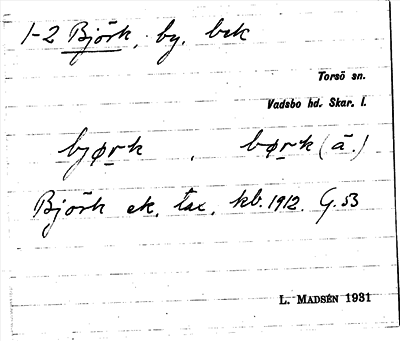 1-2 Björk, by, brk
Torsö sn.
Vadsbo hd. Skar. l.
bjørk , børk (ä.)
Björk ek. tax. kb. 1912. G. 53
L. MADSÉN 1931